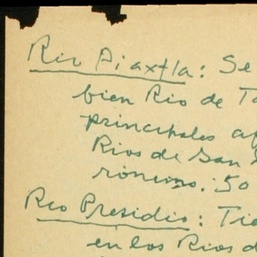 Rio Piaxtla: Se
bien Rio de Ta
principales af
Rios de San
ronimo. 50
Rio Presidio: Tie
en los Rios d